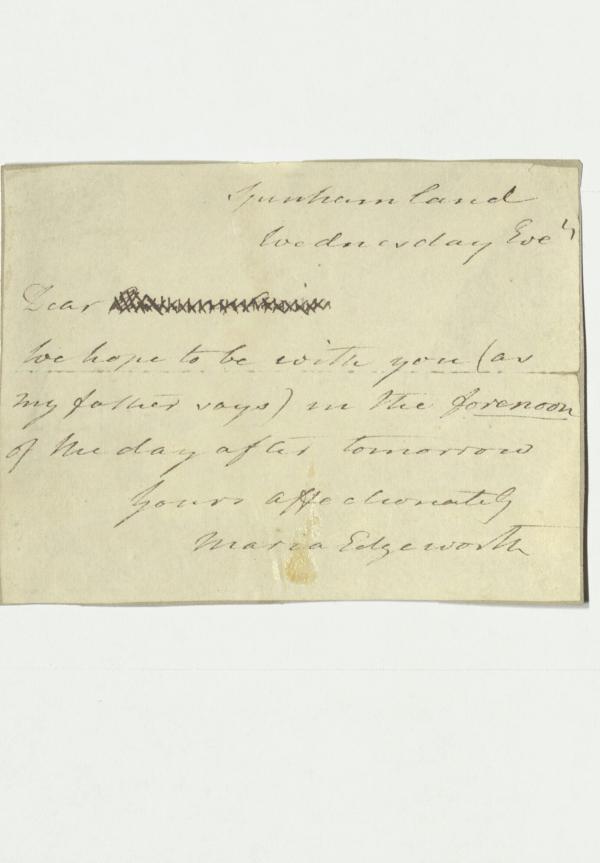 Spunhamland
Wednesday Eve^g
Dear
We hope to be with you (as
my father says) in the forenoon
of the day after tomorrow
Yours affectionately
Maria Edgeworth